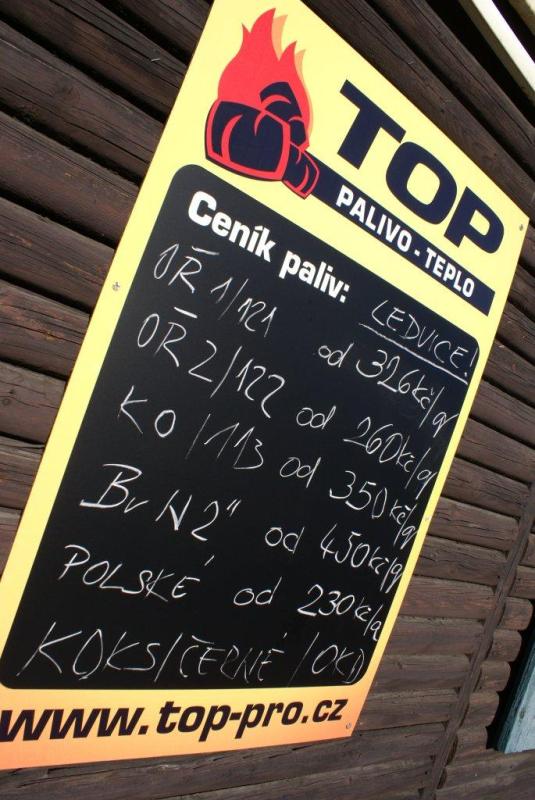 TOP
PALIVO - TEPLO
Ceník paliv:
LEDVICE!
OŘ 1/121 od 326kč/q
OŘ 2/122 od 260kč/q
KO /113 od 350kč/q
Br N2" od 450kč/q
POLSKÉ od 230kč/q
KOKS/ČERNÉ /OKD
www.top-pro.cz